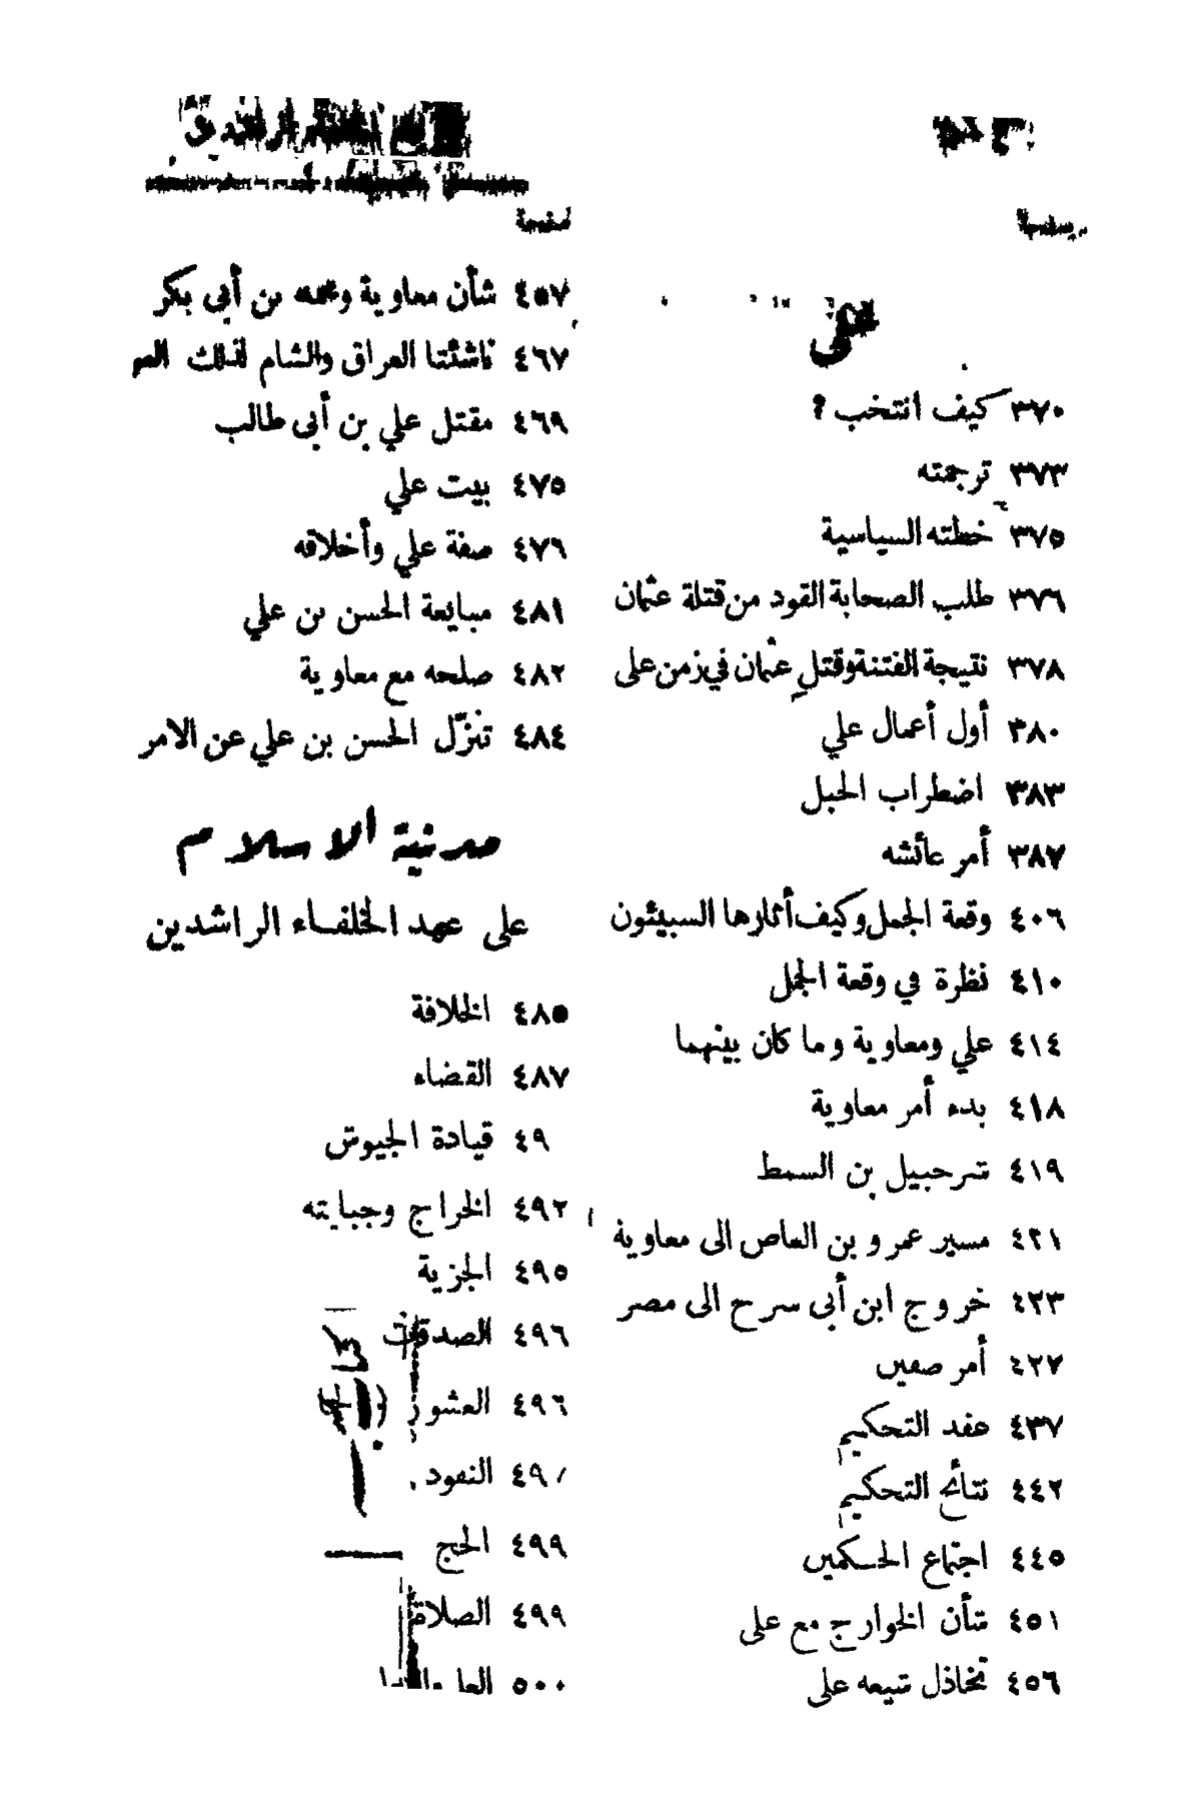 صفحة
علي
٣٧٠ كيف انتخب ؟
٣٧٣ ترجمته
٣٧٥ خطته السياسية
٣٧٦ طلب الصحابة القود من قتلة عثمان
٣٧٨ نتيجة الفتنة وقتل عثمان في زمن على
٣٨٠ أول أعمال علي
٣٨٣ اضطراب الحبل
٣٨٧ أمر عائشه
٤٠٦ وقعة الجمل وكيف أثارها السبيئون
٤١٠ نظرة في وقعة الجمل
٤١٤ علي ومعاوية وما كان بينهما
٤١٨ بدء أمر معاوية
٤١٩ شرحبيل بن السمط
٤٢١ مسير عمرو بن العاص الى معاوية
٤٢٣ خروج ابن أبى سرح الى مصر
٤٢٧ أمر صفين
٤٣٧ عقد التحكيم
٤٤٢ نتائج التحكيم
٤٤٥ اجتماع الحكمين
٤٥١ شأن الخوارج مع على
٤٥٦ تخاذل شيعه على
صفحة
٤٥٧ شأن معاوية ومحمد بن أبى بكر
٤٦٧ ناشئتا العراق والشام لذلك
٤٦٩ مقتل علي بن أبى طالب
٤٧٥ بيت علي
٤٧٦ صفة علي وأخلاقه
٤٨١ مبايعة الحسن بن علي
٤٨٢ صلحه مع معاوية
٤٨٤ تنزّل الحسن بن علي عن الامر
مدنية الاسلام
على عهد الخلفاء الراشدين
٤٨٥ الخلافة
٤٨٧ القضاء
٤٩ قيادة الجيوش
٤٩٢ الخراج وجبايته
٤٩٥ الجزية
٤٩٦ الصدقات
٤٩٦ العشور
٤٩ النقود
٤٩٩ الحج
٤٩٩ الصلاة
٥٠٠